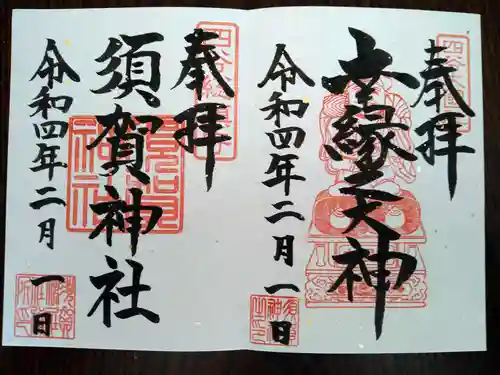 奉拝
幸縁之大神
令和四年二月一日
奉拝
須賀神社
令和四年二月一日